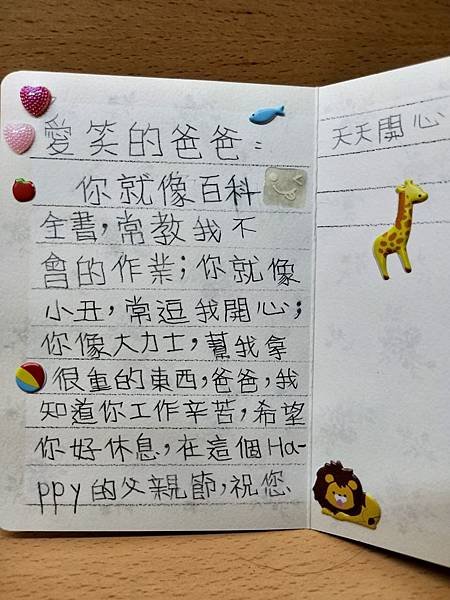 愛笑的爸爸：
你就像百科
全書，常教我不
會的作業；你就像
小丑，常逗我開心；
你像大力士，幫我拿
很重的東西，爸爸，我
知道你工作辛苦，希望
你好休息，在這個Ha-
ppy的父親節，祝您
天天開心